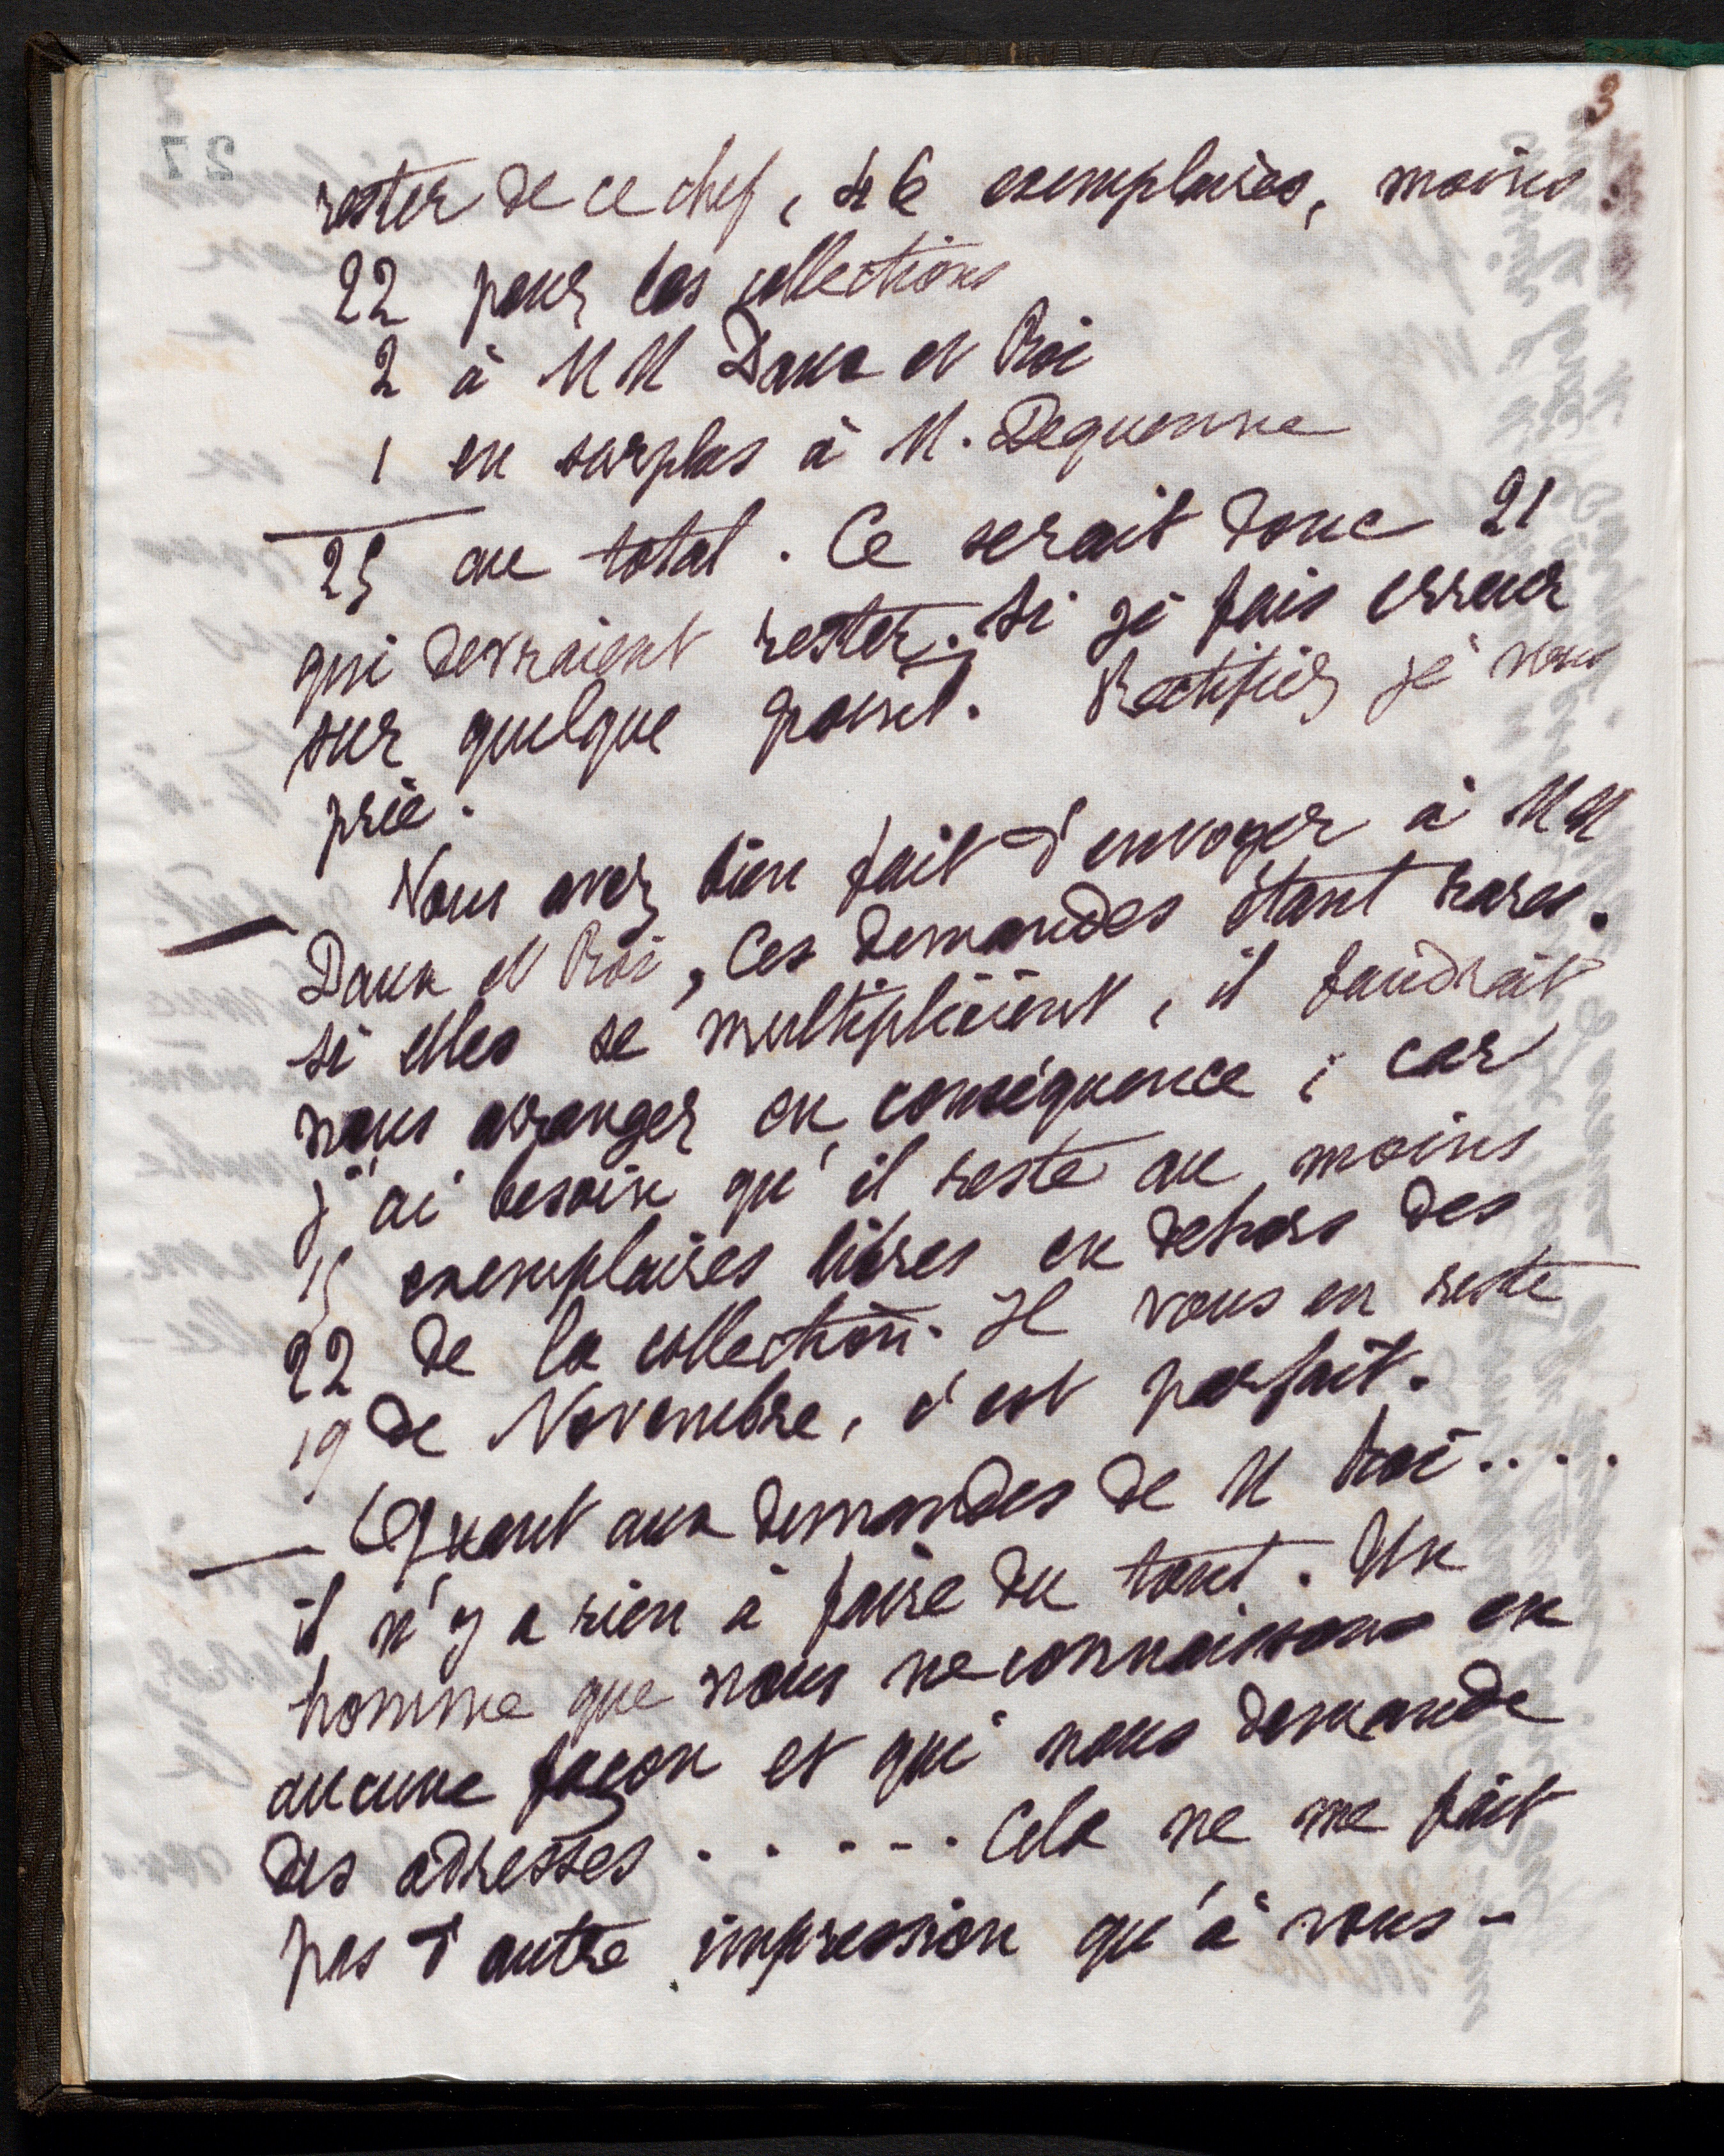 3
rester de ce chef, 46 exemplaires, moins
22 pour les collections
2 à MM Daux et Roi
1 en surplus à M. Dequenne
25 au total. Ce serait donc 21
qui devraient rester. Si je fais erreur
sur quelque point. Rectifiez je vous
prie.
— Vous avez bien fait d'envoyer à MM
Daux et Roi, Ces demandes étant rares.
si elles se multipliaient, il faudrait
nous arranger en conséquence ; car
j'ai besoin qu'il reste au moins
15 exemplaires libres en dehors des
22 de la collection. Il vous en reste
19 de Novembre, c'est parfait.
— Quant aux demandes de M Roi....
il n'y a rien à faire du tout. Un
homme que nous ne connaissons en
aucune façon et qui nous demande
des adresses...... Cela ne me fait
pas d'autre impression qu'à vous-